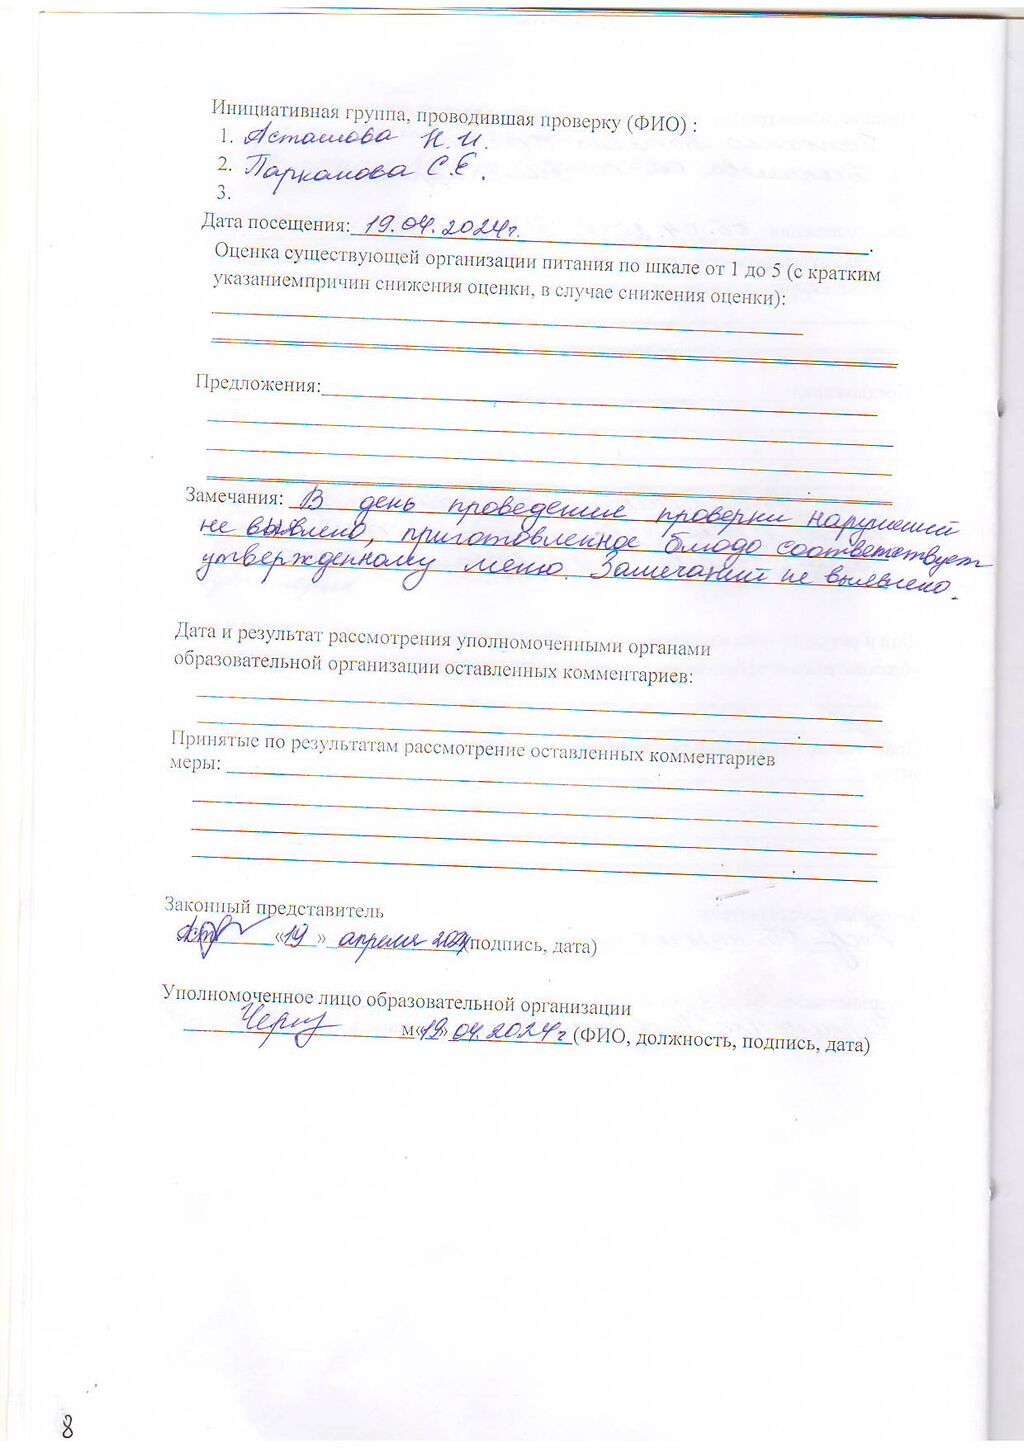 Инициативная группа, проводившая проверку (ФИО) :
1. Асташова Н.И.
2. Парканова С.Е.
3.
Дата посещения: 19.04.2024г.
Оценка существующей организации питания по шкале от 1 до 5 (с кратким
указаниемпричин снижения оценки, в случае снижения оценки):
Предложения:
Замечания: В день проведение проверки нарушений
не выявлено, приготовленное блюдо соответствует
утвержденному меню. Замечаний не выявлено.
Дата и результат рассмотрения уполномоченными органами
образовательной организации оставленных комментариев:
Принятые по результатам рассмотрение оставленных комментариев
меры:
Законный представитель
«19» апреля 2024 (подпись, дата)
Уполномоченное лицо образовательной организации
м«19» 04.2024г (ФИО, должность, подпись, дата)
8